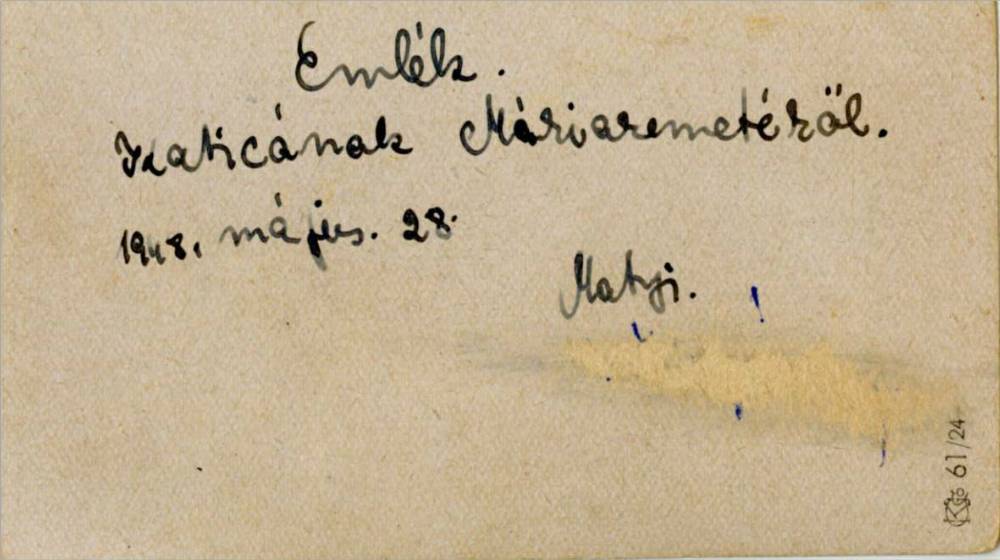 Emlék.
Katicának Máriaremetéről.
1948. május. 28.
Matyi.
61/24